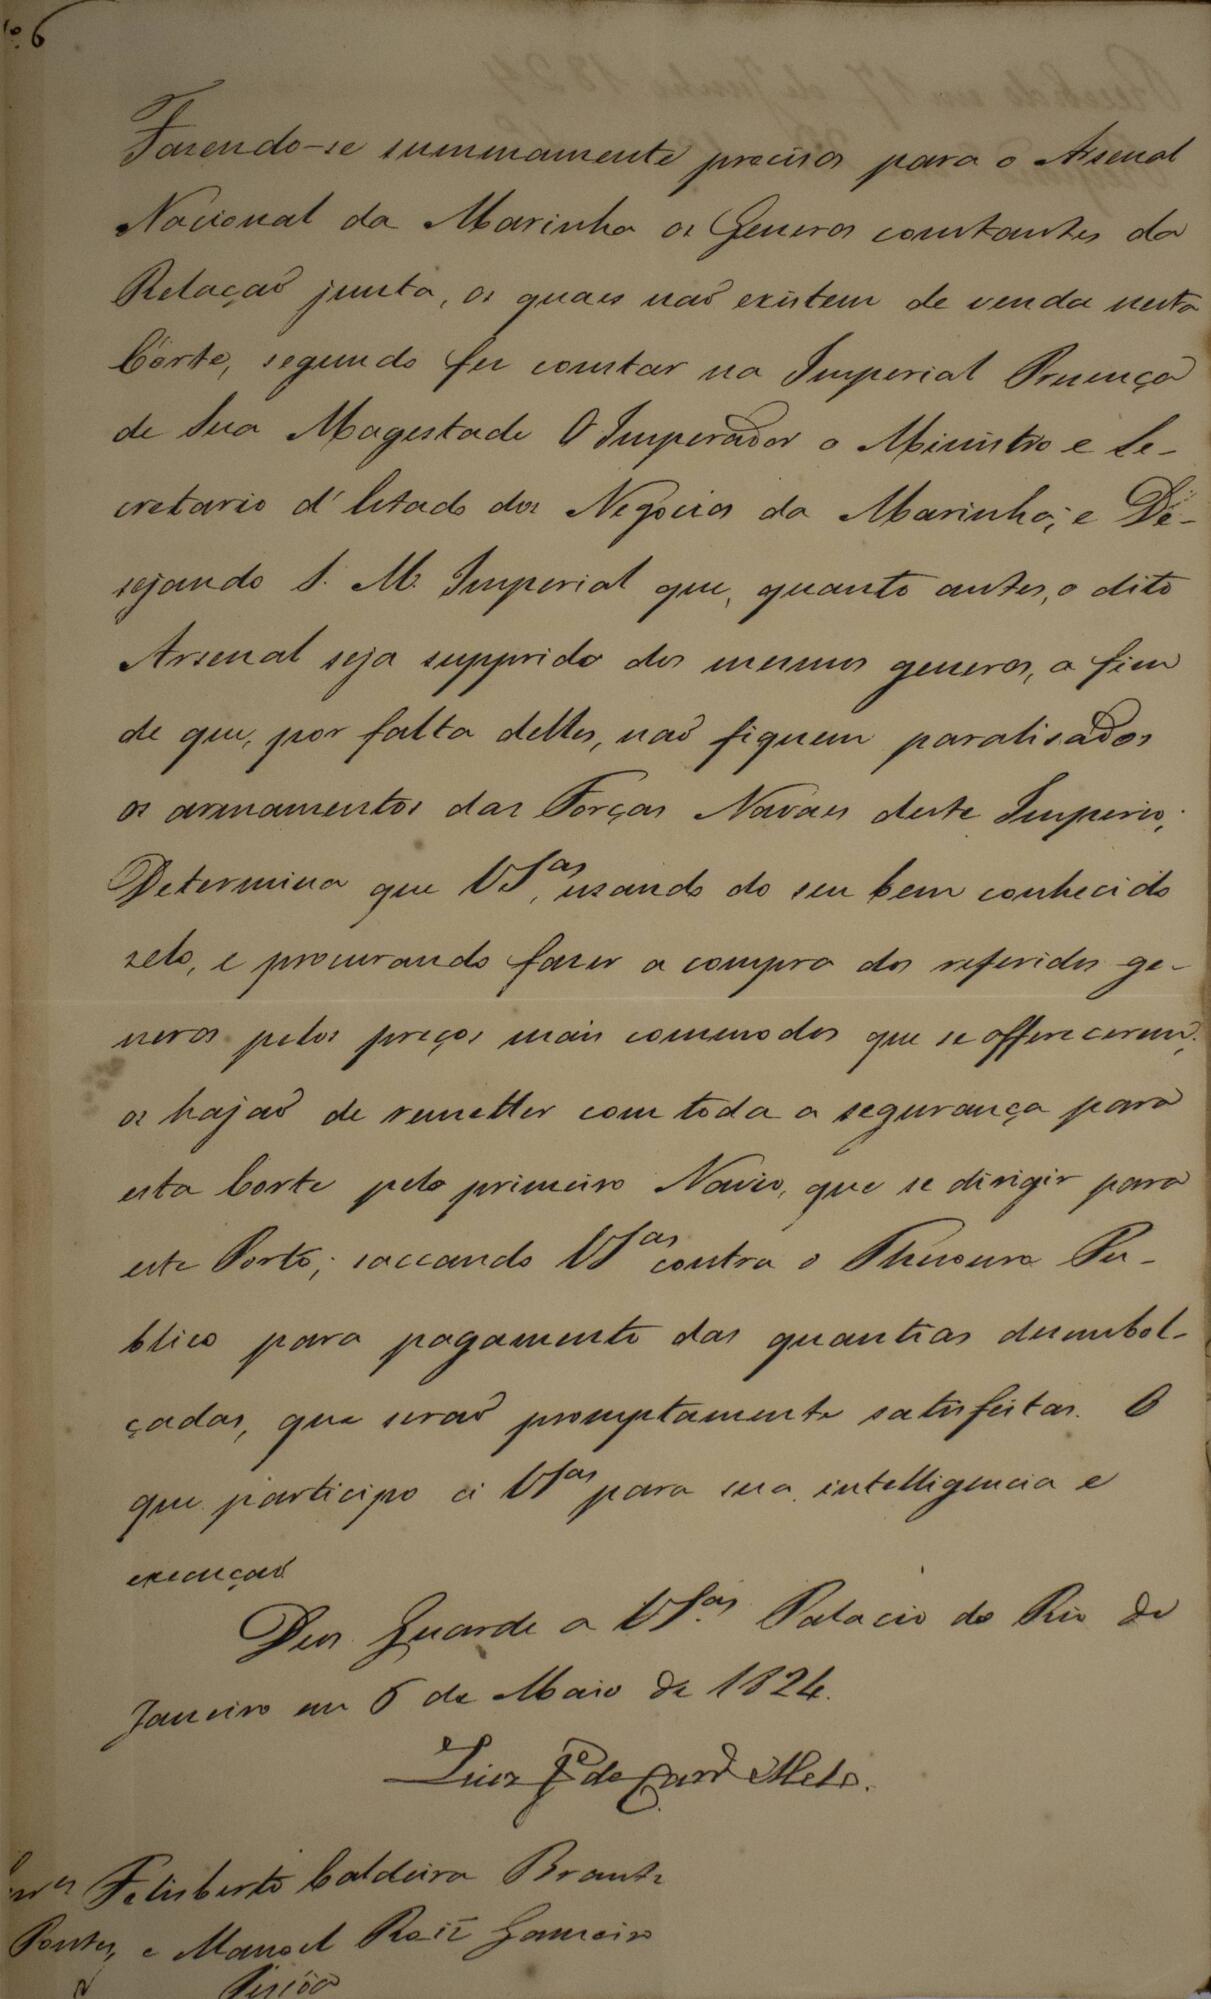 Nº 6
Fazendo-se summamente precisos para o Arsenal
Nacional da Marinha os Generos constantes da
Relação junta, os quaes não existem de venda nesta
Côrte, segundo fez constar na Imperial Presença
de Sua Magestade O Imperador o Ministro e Se-
cretario d'Estado dos Negocios da Marinha; e De-
sejando S. M. Imperial que, quanto antes, o dito
Arsenal seja supprido dos mesmos generos, a fim
de que, por falta delles, não fiquem paralisados
os armamentos das Forças Navaes deste Imperio;
Determina que VSas, usando do seu bem conhecido
zelo, e procurando fazer a compra dos referidos ge-
neros pelos preços mais commodos que se offerecerem,
os hajão de remetter com toda a segurança para
esta Corte pelo primeiro Navio, que se dirigir para
este Porto; saccando VSas contra o Thesouro Pu-
blico para pagamento das quantias desembol-
çadas, que serão promptamente satisfeitas. O
que participo a VSas para sua intelligencia e
execução
Deos Guarde a VSas. Palacio do Rio de
Janeiro em 6 de Maio de 1824.
Luiz Je de Carvo e Mello.
Snres Felisberto Caldeira Brant
Pontes, e Manoel Roiz Gameiro
Pessôa